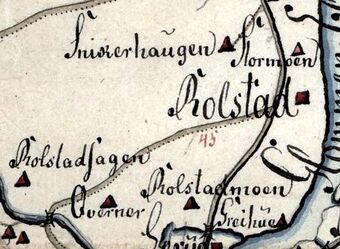 Snixerhaugen
Stormoen
Rolstad
45
Rolstadhagen
Rolstadmoen
Overner
Freihue